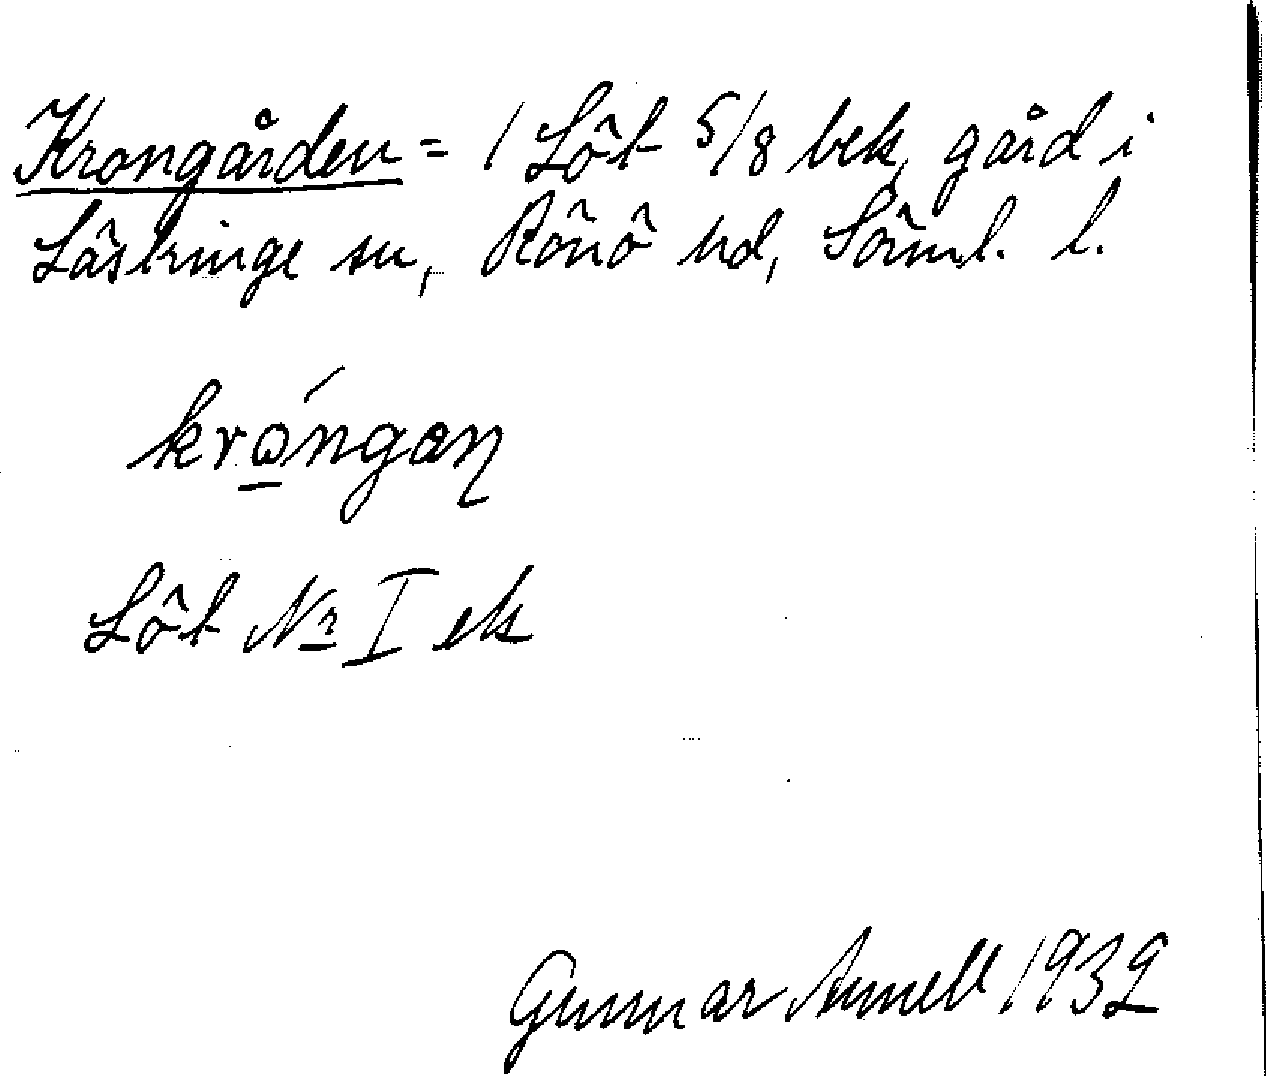 Krongården = 1 Löt 5/8 bek, gård i
Lästringe sn, Rönö hd, Söml. l.
krǫ́ngan
Löt No I ek
Gunnar Annell 1932